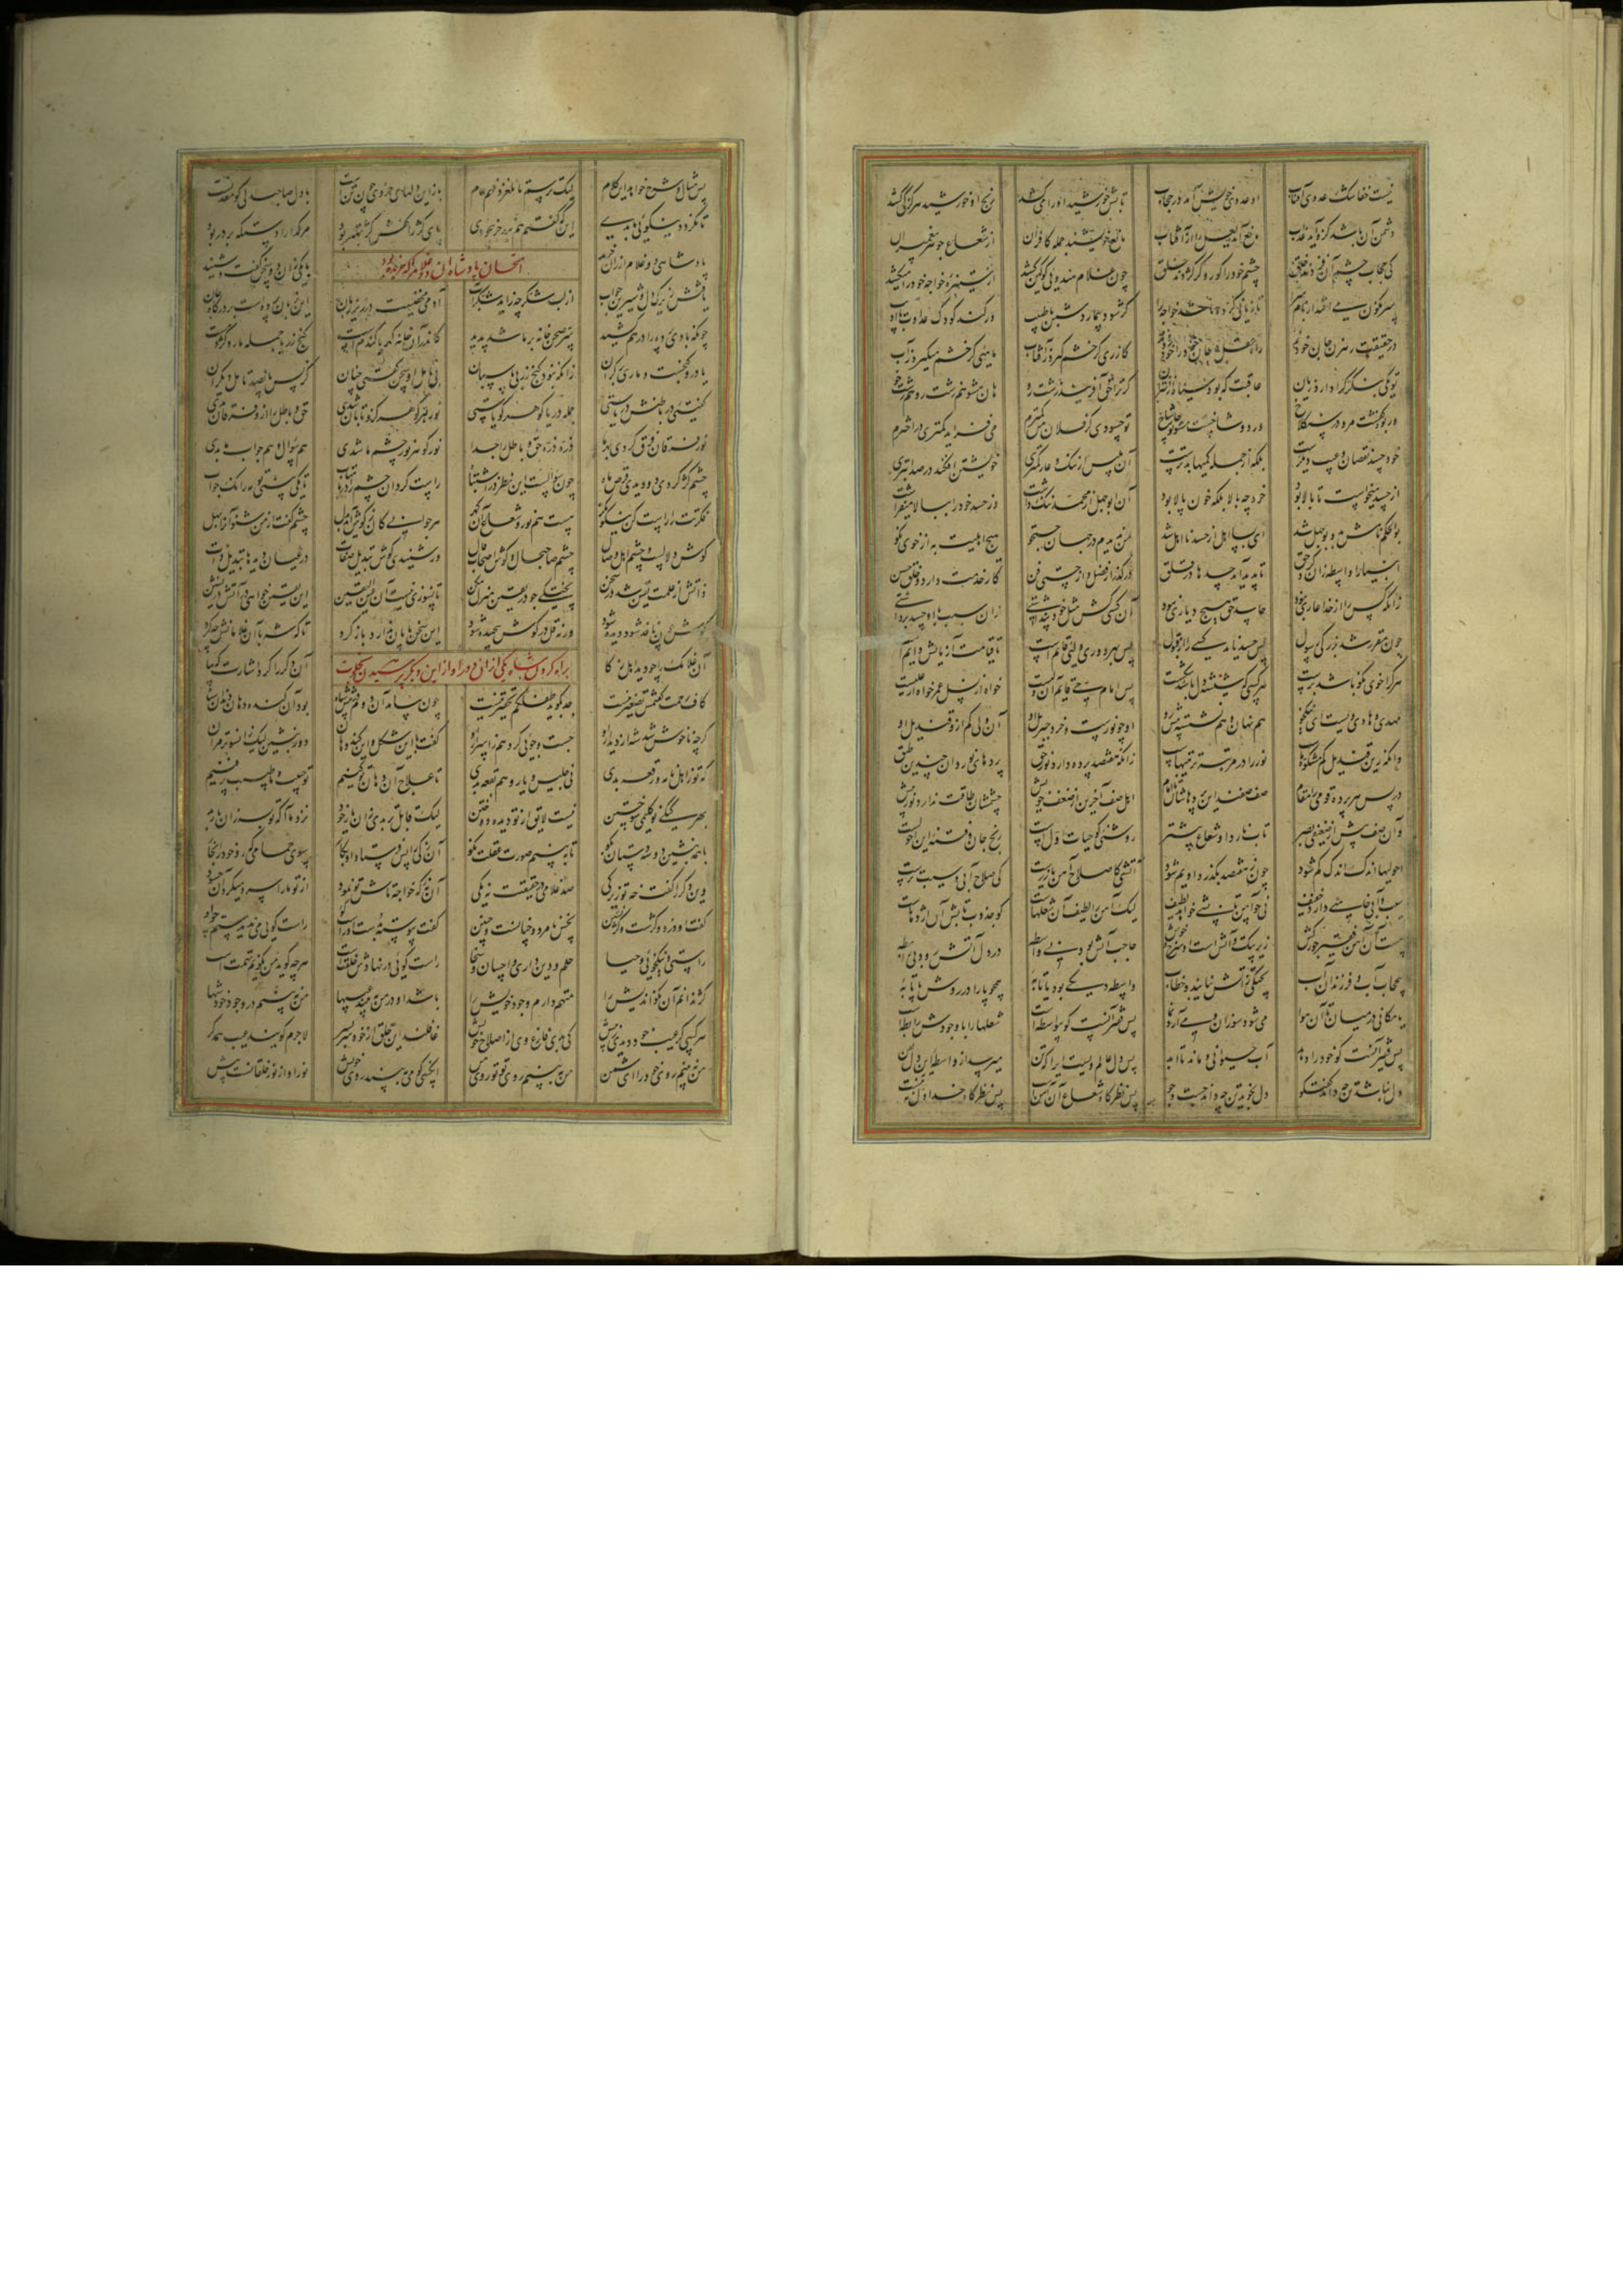 نیست خفاشک عدوی آفتاب او عدو خویش آمد در حجاب تابش خورشید او را میکشد رنج او خورشید هرگز کی کشد
دشمن آن باشد کزو آید عذاب مانع آید لعل را از آفتاب مانع خویشند جمله کافران از شعاع جوهر پیغمبران
کی حجاب چشم آن فردند خلق چشم خود را کور و کژ کردند خلق چون غلام هندویی کو کین کشد از ستیزه خواجه خود را میکشد
سرنگون می افتد از بام سرا تا زیانی کرده باشد خواجه را گر شود بیمار دشمن با طبیب ور کند کودک عداوت با ادیب
در حقیقت رهزن جان خودند راه عقل و جان خود را خود زدند گازری گر خشم گیرد ز آفتاب ماهیی گر خشم میگیرد ز آب
تو یکی بنگر کرا دارد زیان عاقبت که بود سیاه اختر از آن گر ترا حق آفریند زشت رو هان مشو هم زشت رو هم زشت خو
ور برد کفشت مرو در سنگلاخ ور دو شاخستت مشو تو چار شاخ تو حسودی کز فلان من کمترم می فزاید کمتری در اخترم
خود حسد نقصان و عیب دیگرست بلکه از جمله کمیها بدترست آن بلیس از ننگ و عار کمتری خویشتن افکند در صد ابتری
از حسد میخواست تا بالا بود خود چه بالا بلکه خون پالا بود آن ابوجهل از محمد ننگ داشت وز حسد خود را ببالا میفراشت
بوالحکم نامش بد و بوجهل شد ای بسا اهل از حسد نااهل شد من ندیدم در جهان جست و جو هیچ اهلیت به از خوی نکو
انبیا را واسطه زان کرد حق تا پدید آید حسدها در قلق در گذر از فضل و از چستی و فن کار خدمت دارد و خلق حسن
زانکه کس را از خدا عاری نبود حاسد حق هیچ دیاری نبود آن کسی کش مثل خود پنداشتی زان سبب با او حسد برداشتی
چون مقرر شد بزرگی رسول پس حسد ناید کسی را از قبول پس بهر دوری ولیی قائم است تا قیامت آزمایش دائم است
هر کرا خوی نکو باشد برست هر کسی کو شیشه دل باشد شکست پس امام حی قائم آن ولیست خواه از نسل عمر خواه از علیست
مهدی و هادی ویست ای نیکخو هم نهان و هم نشسته پیش رو او چو نورست و خرد جبریل او آن ولی کم ازو قندیل او
وانکه زین قندیل کم مشکوة ماست نور را در مرتبه ترتیبهاست زانکه هفتصد پرده دارد نور حق پردهای نور دان چندین طبق
در پس هر پرده قومی را مقام صف صفند این پردهاشان تا امام اهل صف آخرین از ضعف خویش چشمشان طاقت ندارد نور پیش
وآن صف پیش از ضعیفی بصر تاب نارد او شعاع بیشتر روشنی کو حیات اولست رنج جان و فتنه این احولست
احولیها اندک اندک کم شود چون ز هفتصد بگذرد او یم شود آتشی کاصلاح آهن یا زرست کی صلاح آبی و سیب ترست
سیب و آبی خامیی دارد خفیف نی چو آهن تابشی خواهد لطیف لیک آهن را لطیف آن شعلهاست کو جذوب تابش آن اژدهاست
هست آن آهن فقیر جورکش زیر پتک و آتش است او سرخ و خوش حاجب آتش بود بی واسطه در دل آتش رود بی رابطه
بی حجاب آب و فرزندان آب پختگی ز آتش نیابند و خطاب واسطه دیگی بود یا تابه همچو پا را در روش پاتابه
یا مکانی در میان تا آن هوا می شود سوزان و می آرد نما پس فقیر آنست کو بیواسطه است شعلها را با وجودش رابطه است
پس فقیر آنست کو خود را دهد آب حیوانی و ماند تا ابد پس دل عالم ویست ایرا که تن میرسد از واسطه این دل بفن
دل نباشد تن چه داند گفت و گو دل نجوید تن چه داند جست و جو پس نظرگاه شعاع آن آهنست پس نظرگاه خدا دل نی تنست
پس مثال و شرح خواهد این کلام لیک ترسم تا نلغزد فهم عام باز این دلهای جزوی چون تنست با دل صاحب دلی کو معدنست
تا نگردد نیکویی ما بدی اینکه گفتم هم نبد جز بیخودی پای کژ را کفش کژ بهتر بود مر گدا را دستگه بر در بود
امتحان پادشاه آن دو غلام را که نو خریده بود
پادشاهی دو غلام ارزان خرید با یکی زان دو سخن گفت و شنید
یافتش زیرک دل و شیرین جواب از لب شکر چه زاید شکر آب آدمی مخفیست در زیر زبان این زبان پرده است بر درگاه جان
چونکه بادی پرده را در هم کشید سر صحن خانه بر ما شد پدید کاندران خانه گهر یا گندم است گنج زر یا جمله مار و کژدم است
یا درو گنجست و ماری بر کران زانکه نبود گنج زر بی پاسبان بی تامل او سخن گفتی چنان کز پس پانصد تامل دیگران
گفتیی در باطنش دریاستی جمله دریا گوهر گویاستی نور هر گوهر کزو تابان شدی حق و باطل را ازو فرقان شدی
نور فرقان فرق کردی بهر ما ذره ذره حق و باطل را جدا نور گوهر نور چشم ما شدی هم سؤال و هم جواب ما بدی
چشم کژ کردی دو دیدی قرص ماه چون سؤالست این نظر در اشتباه راست گردان چشم را در ماهتاب تا یکی بینی تو مه را نک جواب
فکرتت را راست کن نیکو نگر هست هم نور و شعاع آن گهر هر جوابی کان ز گوش آید بدل چشم گفت از من شنو آنرا بهل
گوش دلالست و چشم اهل وصال چشم صاحب حال و گوش اصحاب قال در شنود گوش تبدیل صفات در عیان دیدها تبدیل ذات
ز آتش ار علمت یقین شد در سخن پختگی جو در یقین منزل مکن تا نسوزی نیست آن عین الیقین این یقین خواهی در آتش در نشین
گوش چون نافذ شود دیده شود ورنه قل در گوش پیچیده شود این سخن پایان ندارد باز گرد تا که شه با آن غلامانش چه کرد
براه کردن شاه یکی را از آن دو غلام و از این دیگر پرسیدن
آن غلامک را چو دید اهل ذکا آن دگر را کرد اشارت که بیا
کاف رحمت گفتمش تصغیر نیست جد که گوید طفلکم تحقیر نیست چون بیامد آن دوم در پیش شاه بود او گنده دهان دندان سیاه
گرچه شه ناخوش شد از دیدار او جست و جویی کرد هم ز اسرار او گفت با این شکل و این گند دهان دور بنشین لیک آنسوتر مران
تا علاج آن دهان تو کنیم تو حبیب و ما طبیب پر فنیم
بهر کیکی نو گلیمی سوختن نیست لایق از تو دیده دوختن
با همه بنشین دو سه دستان بگو تا ببینم صورت عقلت نکو آن ذکی را پس فرستاد او بکار سوی حمامی که رو خود را بخار
وین دگر را گفت خه تو زیرکی صد غلامی در حقیقت نه یکی آن نه که خواجه تاش تو نمود از تو ما را سرد میکرد آن حسود
گفت او دزد و کژست و کژنشین حیز و نامرد و چنانست و چنین گفت پیوسته بدست او راست گو راست گویی من ندیدستم چو او
راستی و نیکخویی و حیا حلم و دین داری و احسان و سخا راست گویی در نهادش خلقتیست هر چه گوید من نگویم تهمتیست
کژ ندانم آن نکو اندیش را متهم دارم وجود خویش را باشد او در من ببیند عیبها من نبینم در وجود خود شها
هر کسی گر عیب خود دیدی ز پیش کی بدی فارغ وی از اصلاح خویش غافلند این خلق از خود ای پسر لاجرم گویند عیب همدگر
من نبینم روی خود را ای شمن من ببینم روی تو تو روی من آنکسی که او ببیند روی خویش نور او از نور خلقانست بیش